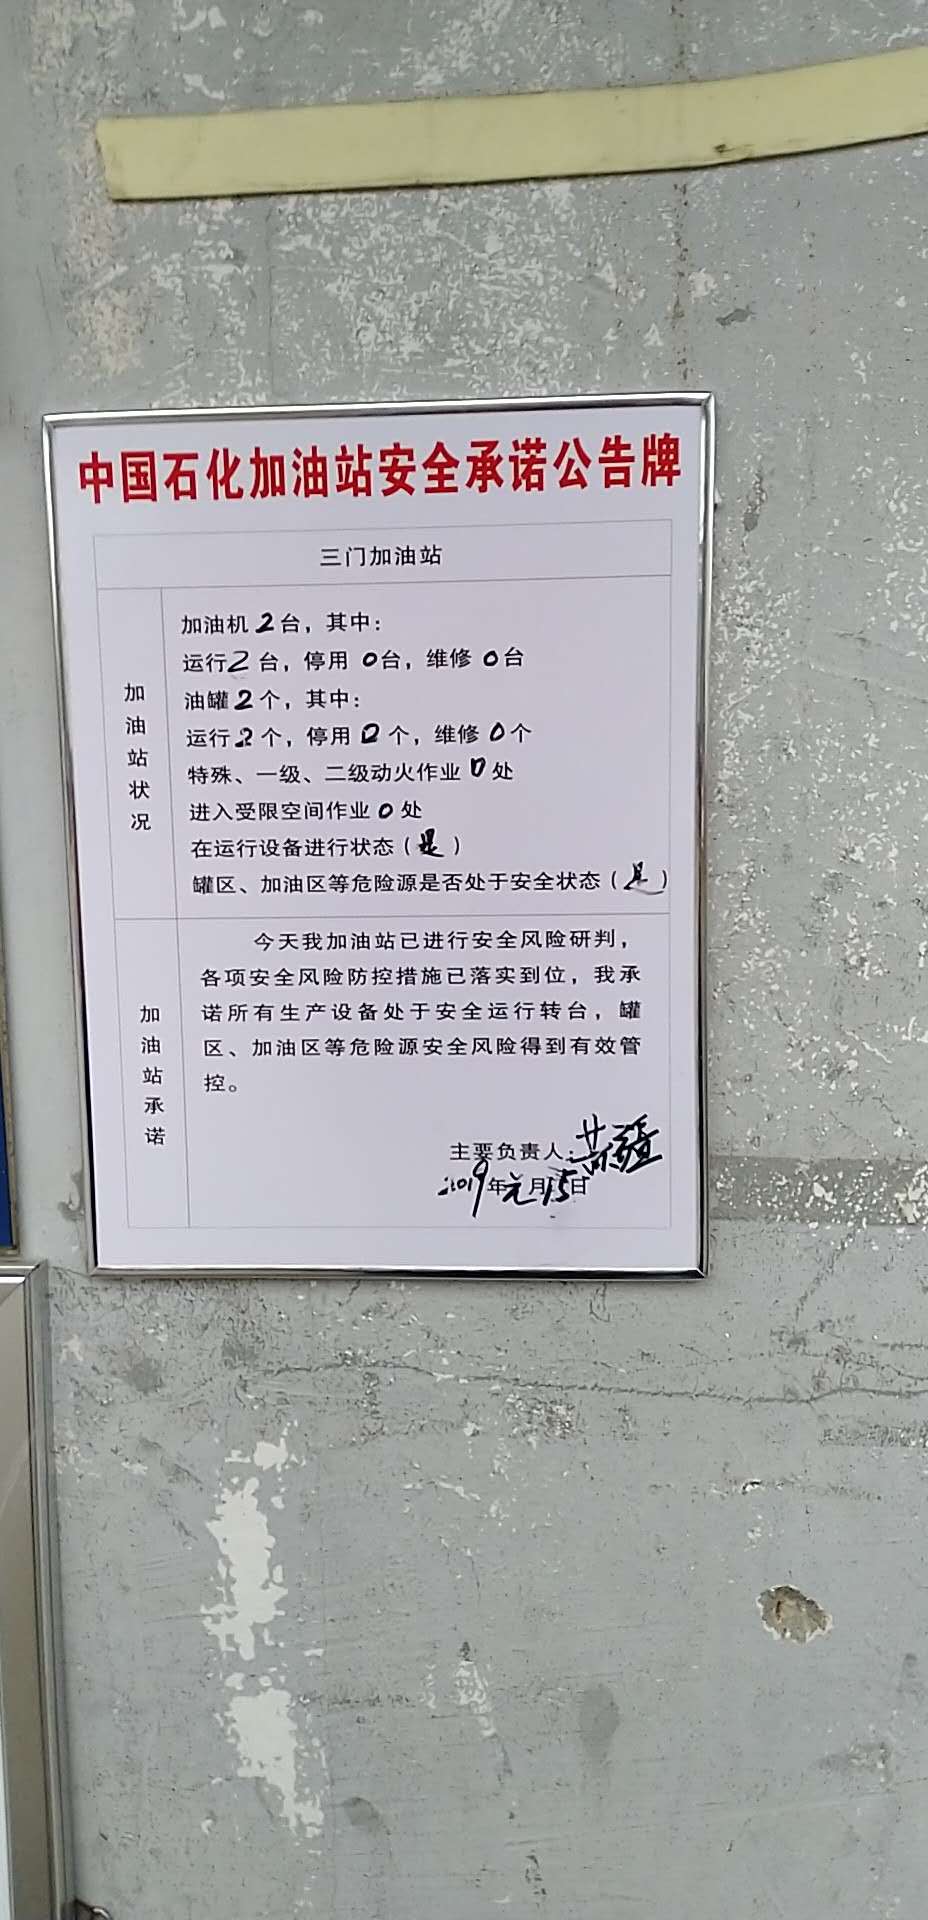 中国石化加油站安全承诺公告牌
三门加油站
加油站状况
加油机2台，其中：
运行2台，停用0台，维修0台
油罐2个，其中：
运行2个，停用0个，维修0个
特殊、一级、二级动火作业0处
进入受限空间作业0处
在运行设备进行状态（是）
罐区、加油区等危险源是否处于安全状态（是）
加油站承诺
今天我加油站已进行安全风险研判，
各项安全风险防控措施已落实到位，我承
诺所有生产设备处于安全运行转台，罐
区、加油区等危险源安全风险得到有效管
控。
主要负责人：
2019年元月15日